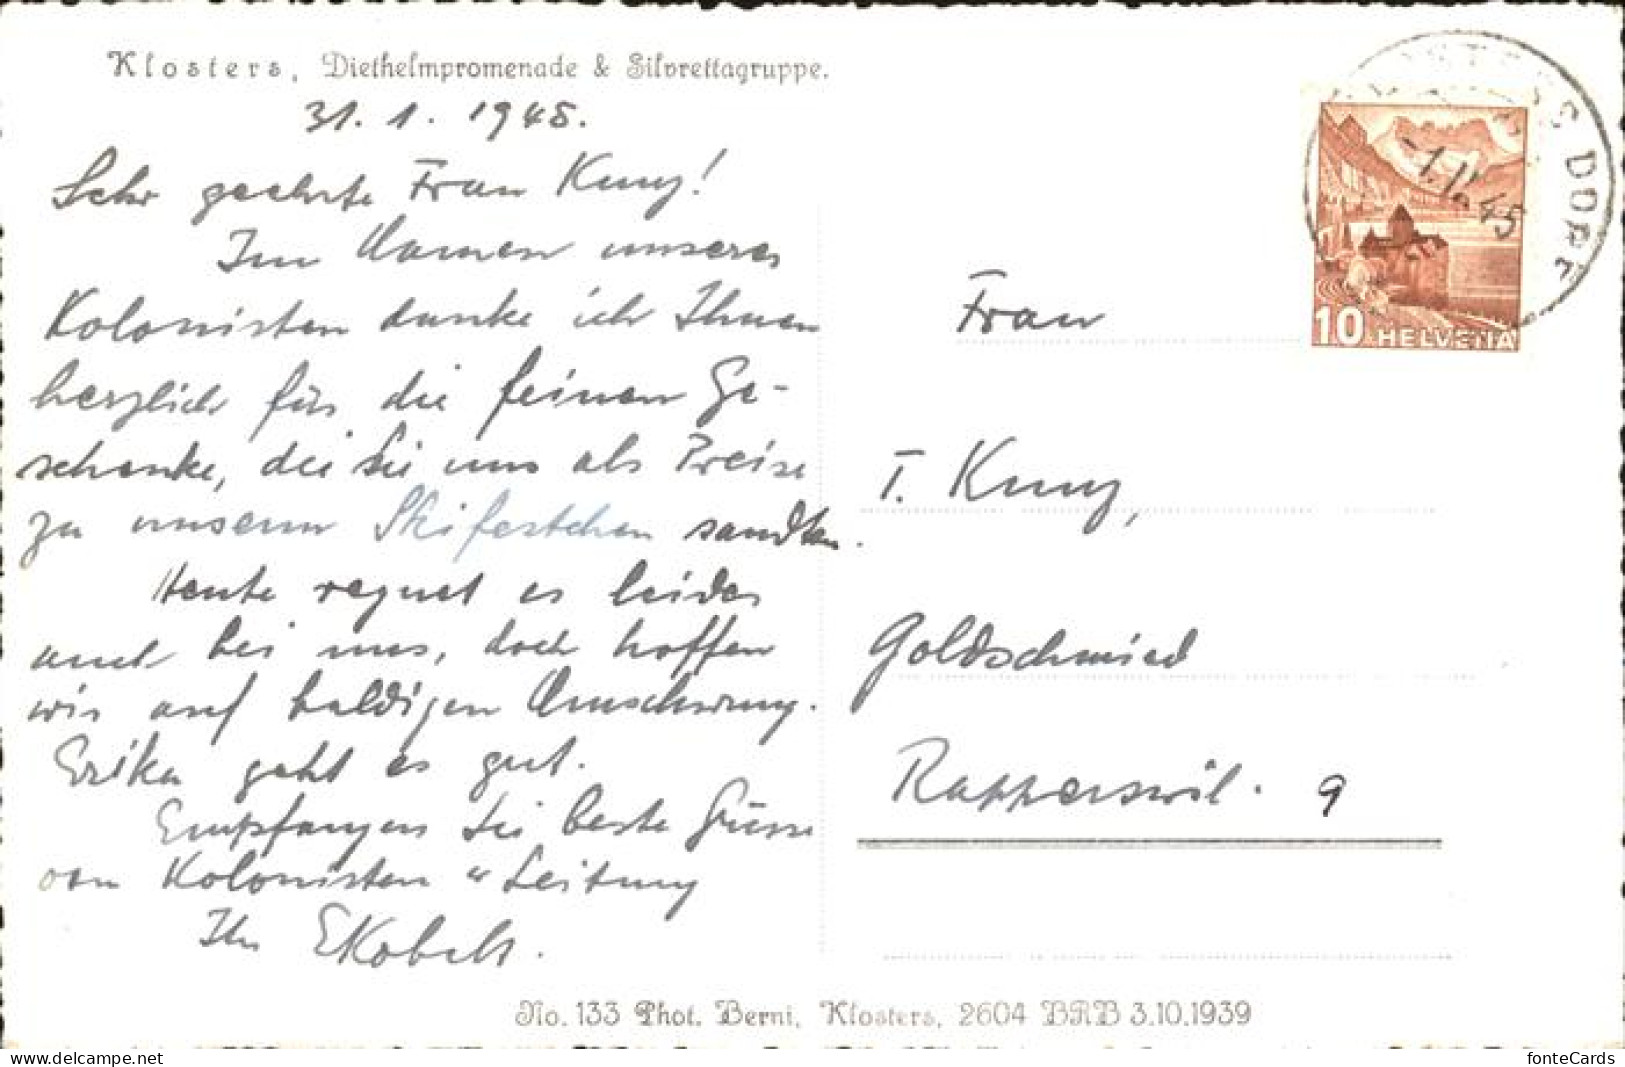 Klosters, Diethelmpromenade & Silvrettagruppe.
31. 1. 1945.
Sehr geehrte Frau Kunz!
Im Namen unserer
Kolonisten danke ich Ihnen
herzlich für die feinen Ge-
schenke, die Sie uns als Preise
zu unserm Skifestchen sandten.
Heute regnet es leider
auch bei uns, doch hoffen
wir auf baldigen Umschwung.
Erika geht es gut.
Empfangen Sie beste Grüsse
von Kolonisten u Leitung
Ihr EKobelt.
KLOSTERS DORF
-1.II.45
10 HELVETIA
Frau
T. Kunz,
Goldschmied
Rapperswil. 9
No. 133 Phot. Berni, Klosters, 2604 BRB 3.10.1939
www.delcampe.net
fonteCards